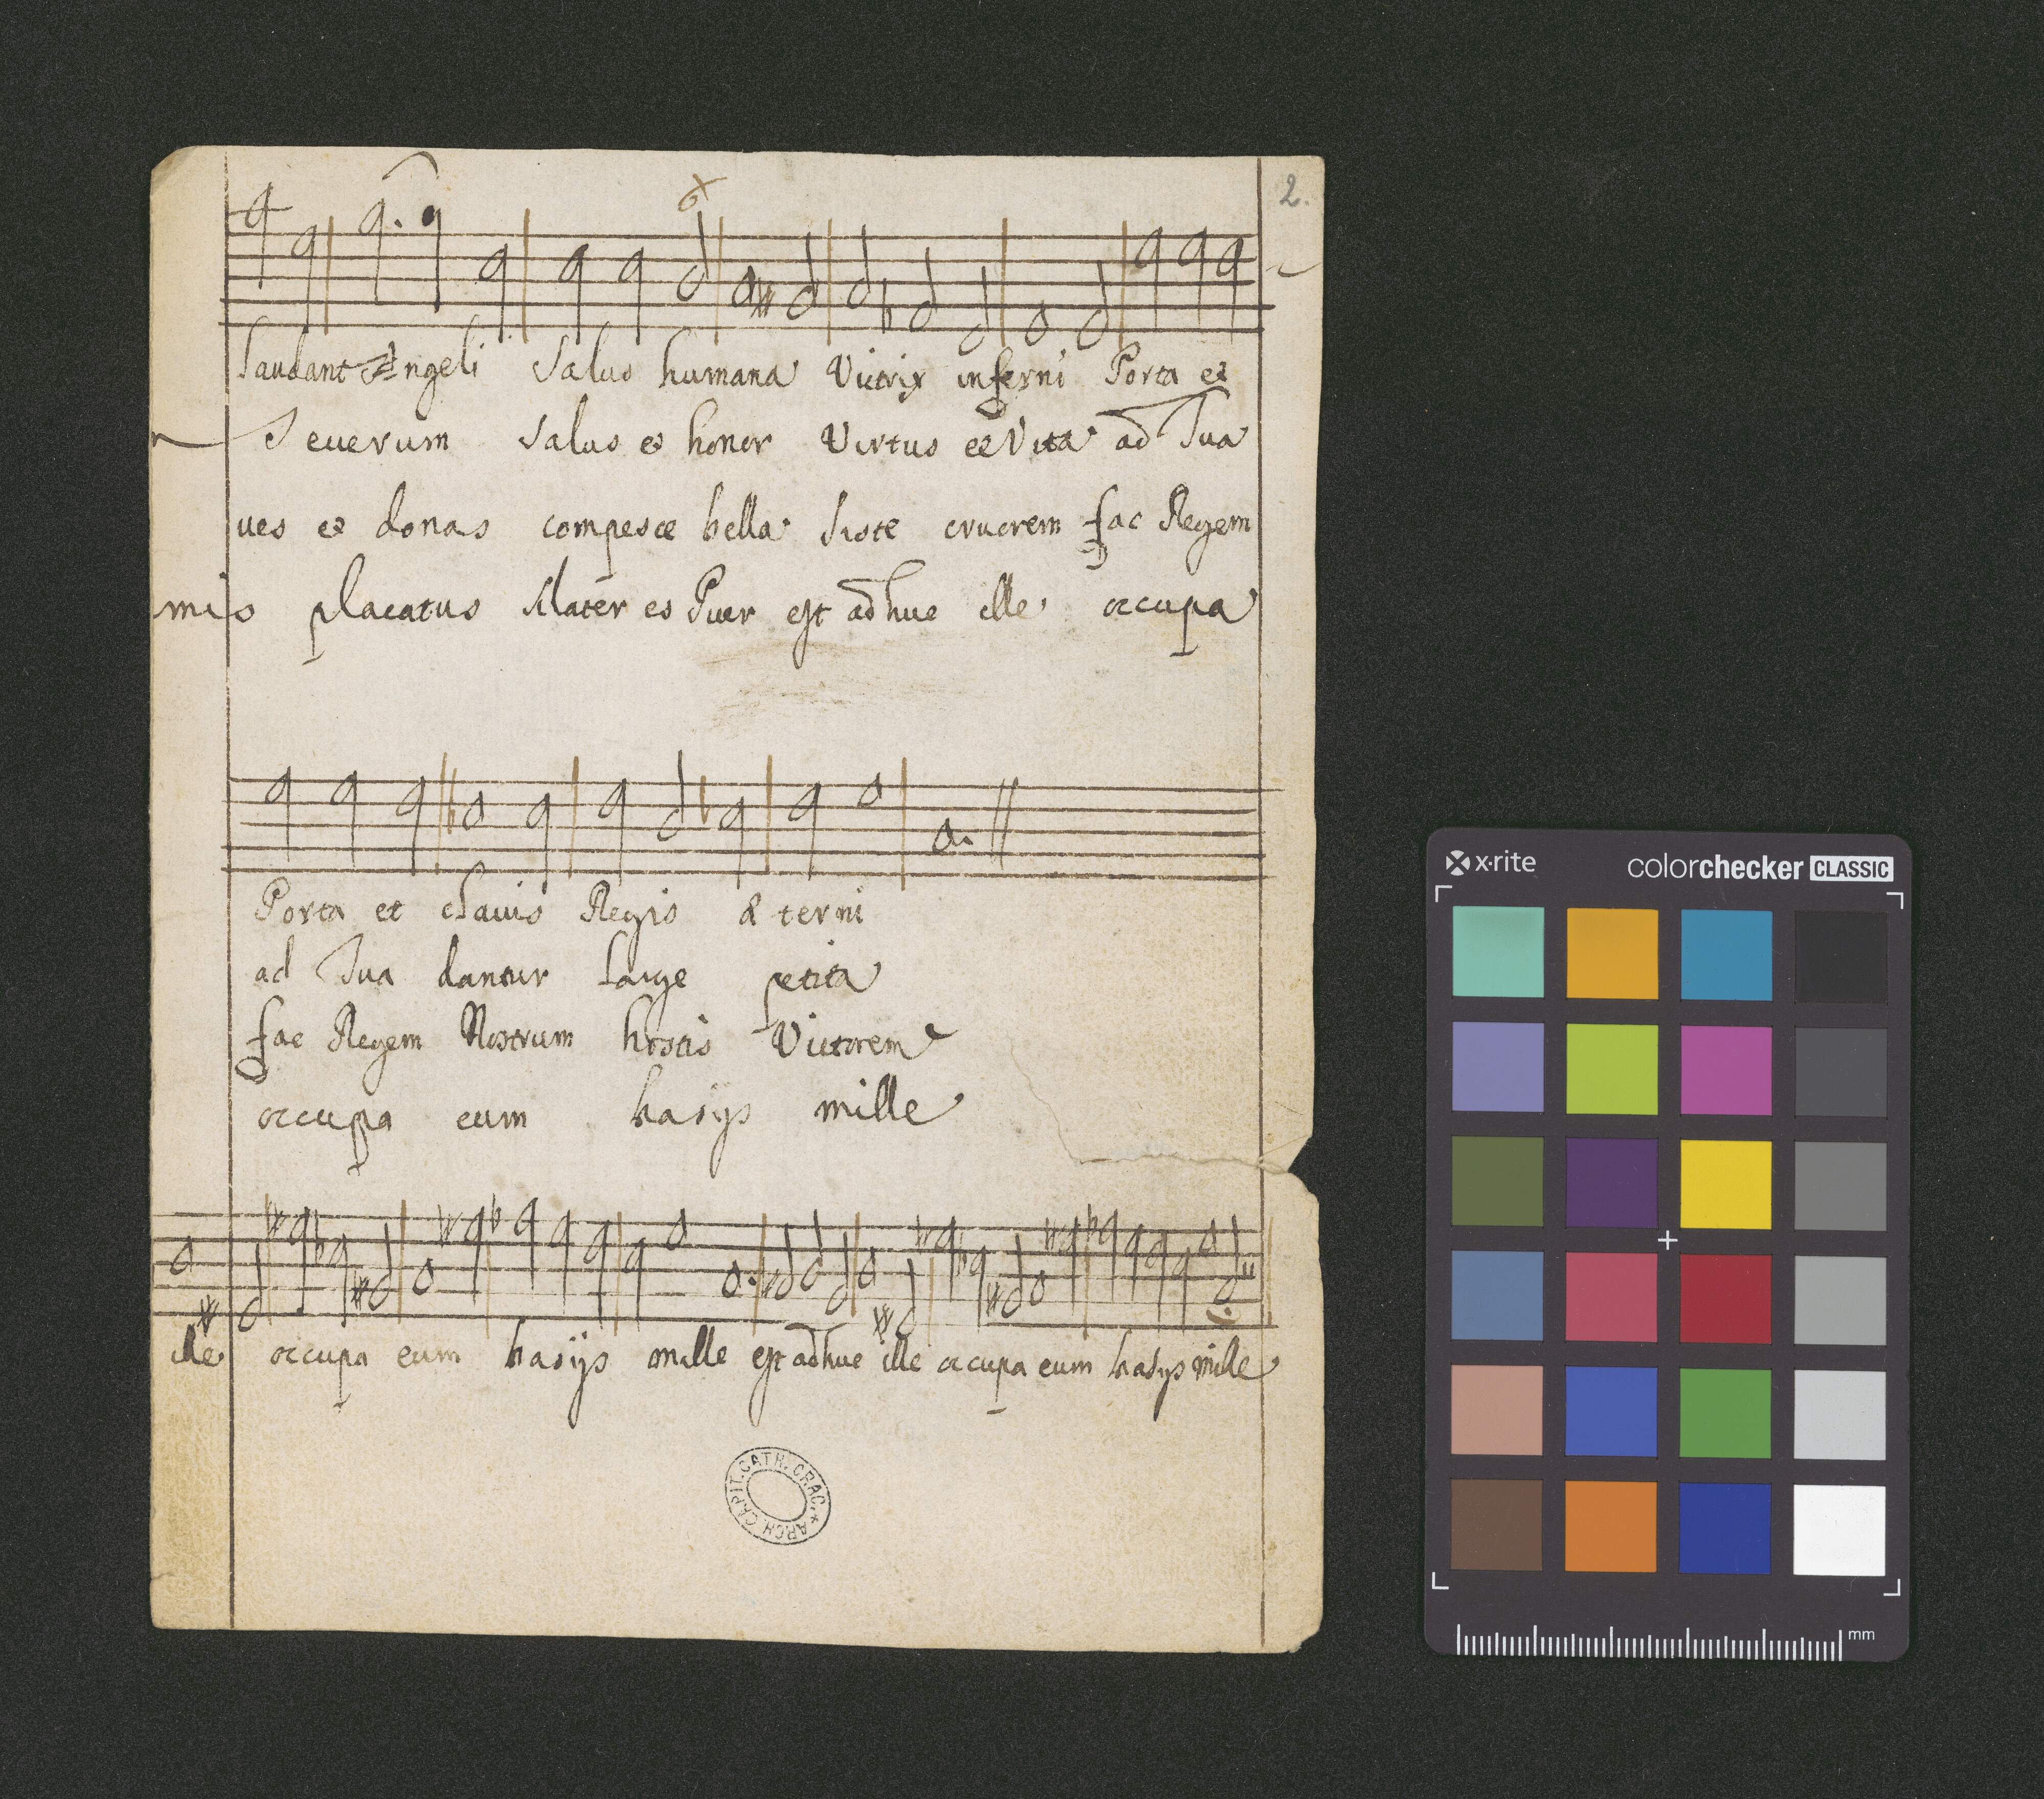 2.
laudant Angeli Salus humana Victrix inferni Porta et
Severum Salus et honor Virtus et Vita ad Tua
ues et donas compesce bella siste cruorem fac Regem
mis placatus Mater es Puer est adhuc ille occupa
Porta et clauis Regis æ terni
ad Tua dantur large petita
fac Regem Nostrum hostis Victorem
occupa eum basijs mille
ille occupa eum basijs mille est adhuc ille occupa eum basijs mille
ARCH. CAPIT. CATH. CRAC.
x·rite colorchecker CLASSIC
mm